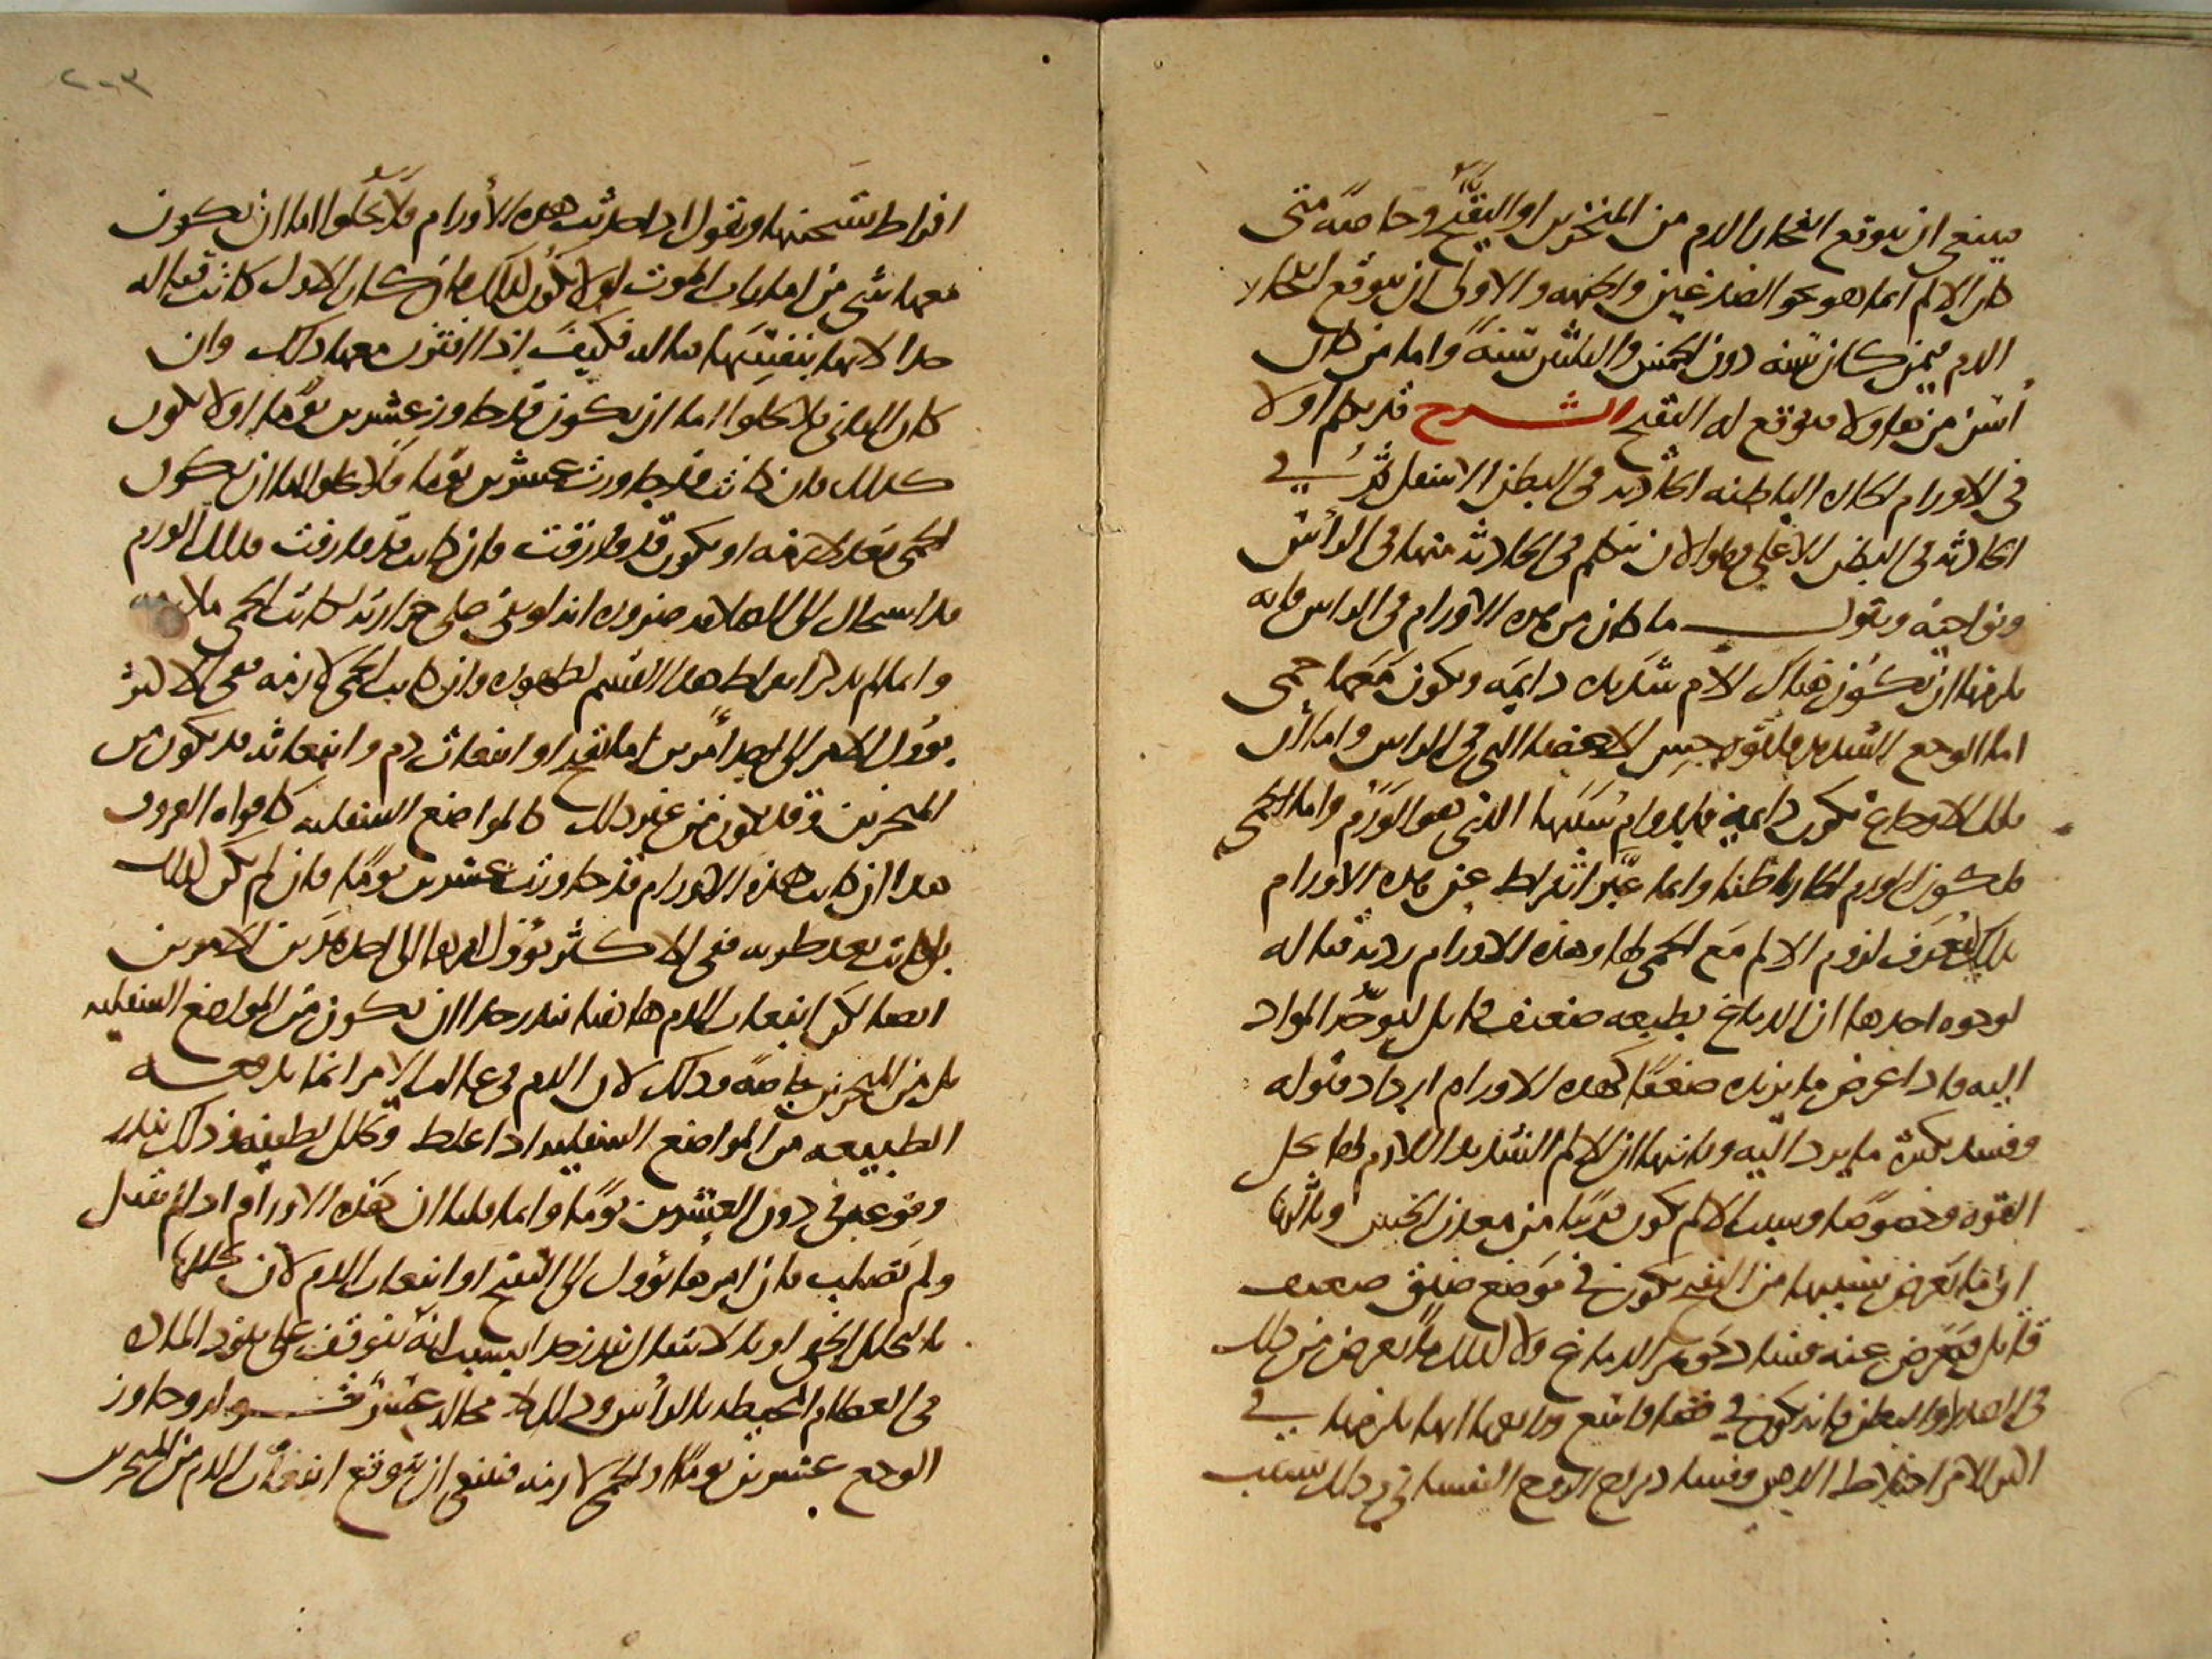 فينبغي ان يتوقع انفجار الدم من المنخرين او التقيح وخاصة متى
كان الالم انما هو نحو الصدغين والجبهه والاولى ان يتوقع انفجار
الدم فيمن كان سنه دون الخمس والثلثين سنة واما من كان
اسن من هاولا فتوقع له التقيح الشرح قد تكلم اولا
في الاورام الحاره الباطنه الحادثه في البطن الاسفل ثم في
الحادثه في البطن الاعلى وهو الان يتكلم في الحادثه منها في الرأس
ونواحيه ونقول ما كان من هذه الاورام في الراس فانه
يلزمها ان يكون هناك الام شديده دايمه ويكون معها حمى
اما الوجع الشديد فلقوه حس الاعضا التي في الراس واما ان
تلك الاوجاع تكون دايمه فلدوام سببها الذي هو الورم واما الحمى
فلكون الورم الحار باطنا وانما عبر ابقراط عن هذه الاورام
بذلك ليعرف لزوم الالم مع الحمى لها وهذه الاورام رديه قتاله
لوجوه احدها ان الدماغ بطبعه ضعيف قابل لتوجه المواد
اليه فاذا عرض ما يزيده ضعفا كهذه الاورام ازداد قبوله
وفسد بكثرة ما يرد اليه وثانيها ان الالم الشديد اللازم لها يحل
القوه وخصوصا وسبب الالم يكون قريبا من معدن الحس وثالثها
ان ما يعرض بسببها من التقيح يكون في موضع ضيق ضعيف
قابل فيعرض عنه فساد جوهر الدماغ ولا كذلك ما يعرض من ذلك
في الصدر او البطن فانه يكون في فضا واسع ورابعها انها يلزمها في
اكثر الامر اختلاط الذهن وفساد مزاج الروح النفساني وذلك بسبب
٢٠٣
افراط سخنها ونقول اذا حدثت هذه الأورام فلا يخلوا اما ان يكون
معها شي من امارات الموت او لا يكون كذلك فان كان الاول كانت قتاله
جدا لانها بنفسها قتاله فكيف اذا اقترن معها ذلك وان
كان الثاني فلا يخلوا اما ان يكون قد جاوز عشرين يوما او لا يكون
كذلك فان كانت قد جاوزت عشرين يوما فلا يخلوا اما ان يكون
الحمى بعد لازمه او يكون قد فارقت فان كانت قد فارقت فذلك الورم
قد استحال الى الصلابه ضروره اذ لو بقي على حرارته لكانت الحمى ملازمه
وانما لم يذكر ابقراط هذا القسم لظهوره وان كانت الحمى لازمه ففي الاكثر
يوول الامر الى احد أمرين اما تقيح او انبعاث دم وانبعاثه قد يكون من
المنخرين وقد يكون من غير ذلك كالمواضع السفليه كافواه العروق
هذا ان كانت هذه الاورام قد جاوزت عشرين يوما فان لم يكن كذلك
بل كانت بعد طريه ففي الاكثر يوول امرها الى احد هذين الامرين
ايضا لكن انبعاث الدم هاهنا يندر جدا ان يكون من المواضع السفليه
بل من المنخرين خاصة وذلك لان الدم في غالب الامر انما يدفعه
الطبيعه من المواضع السفليه اذا غلظ وتحلل لطيفه وذلك يندر
وقوعه في دون العشرين يوما وانما قلنا ان هذه الاورام اذا لم تقتل
ولم تصلب فان امرها يؤول الى التقيح او انبعاث الدم لان تحللها
بالتحلل الخفي او بالانتقال يندر جدا بسبب انه يتوقف على نفوذ الماده
في العظام المحيطه بالرأس وذلك لا محاله عسر قوله وجاوز
الوجع عشرين يوما والحمى لازمه فينبغي ان يتوقع انفجار الدم من المنخرين